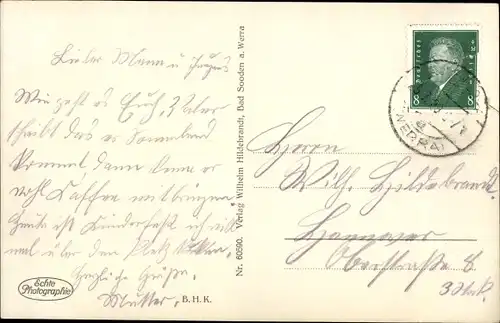 Lieber Mann u Jungens
Wie geht es Euch, Vater
schreibt das er Sonnabend
kommt, dann kann er
wohl Kaffee mitbringen
Heute ist Kinderfest, ich will
mal über den Platz
Herzliche Grüße,
Mutter.
B.H.K.
Echte
Photographie
Nr. 60590. Verlag Wilhelm Hildebrandt, Bad Sooden a. Werra
Deutsches Reich
8 8
(WERRA)
Herrn
Wilh. Hildebrandt
Hannover
Oberstraße 8.
3 Stck.